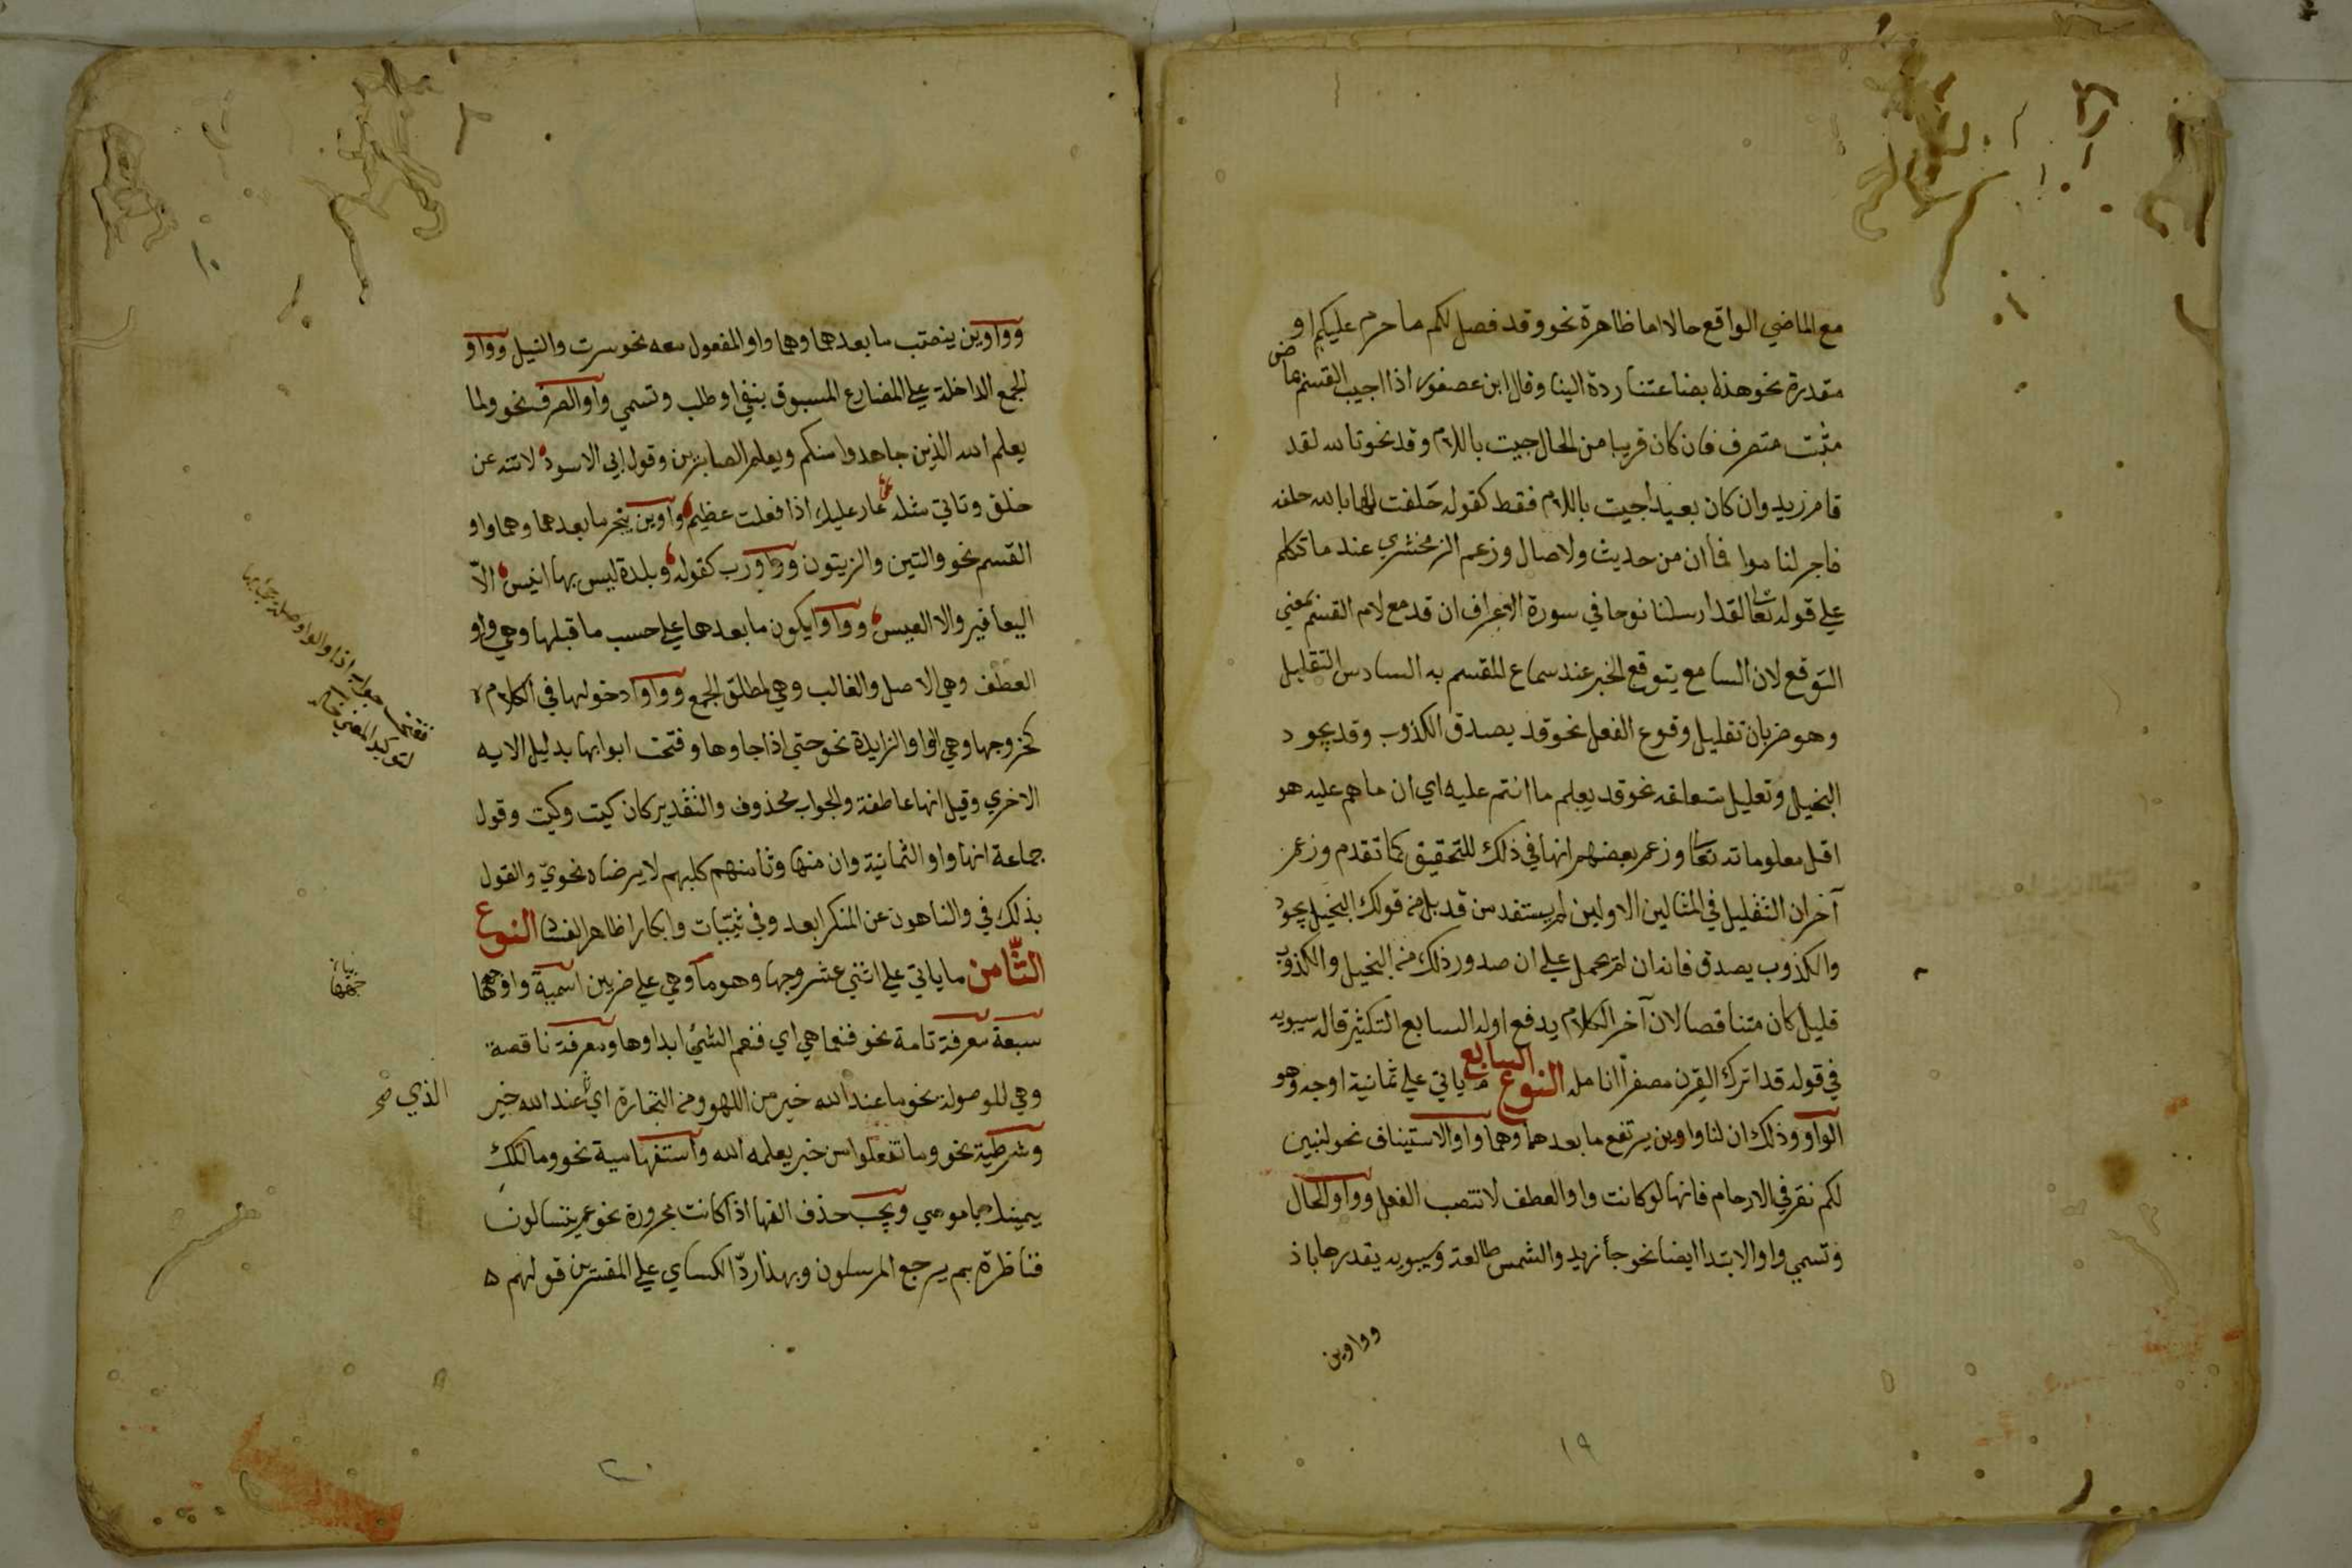 مع الماضي الواقع حالا اما ظاهرة نحو وقد فصل لكم ما حرم عليكم او
مقدرة نحو هذه بضاعتنا ردة الينا وقال ابن عصفور اذا اجيب القسم بماض
مثبت متصرف فان كان قريبا من الحال جيت باللام وقد نحو تالله لقد
قام زيد وان كان بعيدا جيت باللام فقط كقوله حلفت لها بالله حلفه
فاجر لناموا فما ان من حديث ولا صال وزعم الزمخشري عند ما تكلم
علي قوله تعالى لقد ارسلنا نوحا في سورة الاعراف ان قد مع لام القسم بمعني
التوقع لان السامع يتوقع الخبر عند سماع المقسم به السادس التقليل
وهو ضربان تقليل وقوع الفعل نحو قد يصدق الكذوب وقد يجود
البخيل وتعليل متعلقه نحو قد يعلم ما انتم عليه اي ان ما هم عليه هو
اقل معلوماته تعا وزعم بعضهم انها في ذلك للتحقيق كما تقدم وزعم
آخر ان التقليل في المثالين الاولين لم يستفد من قد بل من قولك البخيل يجود
والكذوب يصدق فانه ان لم يحمل علي ان صدور ذلك من البخيل والكذوب
قليل كان متناقضا لان آخر الكلام يدفع اوله السابع التكثير قاله سيبويه
في قوله قد اترك القرن مصفرا انامله النوع السابع ما ياتي علي ثمانية اوجه وهو
الواو وذلك ان لنا واوين يرتفع ما بعدهما وهما واو الاستيناف نحو لنبين
لكم نقر في الارحام فانها لو كانت واو العطف لانتصب الفعل وواو الحال
وتسمي واو الابتدا ايضا نحو جأ زيد والشمس طالعة وسيبويه يقدرها باذ
وواوين
١٩
وواوين ينصتب ما بعدهما وهما واو المفعول معه نحو سرت والنيل وواو
الجمع الداخلة علي المضارع المسبوق بنفي او طلب وتسمي واو الصرف نحو ولما
يعلم الله الذين جاهدوا منكم ويعلم الصابرين وقول ابي الاسود لا تنه عن
خلق وتاتي مثله عار عليك اذا فعلت عظيم وواوين ينجر ما بعدهما وهما واو
القسم نحو والتين والزيتون وواو رب كقوله وبلدة ليس بها انيس الا
اليعافير والا العيس وواوا يكون ما بعدها علي حسب ما قبلها وهي واو
العطف وهي الاصل والغالب وهي لمطلق الجمع وواوا دخولها في الكلام
كخروجها وهي الواو الزايدة نحو حتي اذا جاوها وفتحت ابوابها بدليل الايه
الاخري وقيل انها عاطفة والجواب محذوف والتقدير كان كيت وكيت وقول
جماعة انها واو الثمانية وان منها وثامنهم كلبهم لا يرضاه نحوي والقول
بذلك في والناهون عن المنكر ابعد وفي ثيبات وابكارا ظاهر الفساد النوع
الثامن ما ياتي علي اثني عشر وجها وهو ما وهي علي ضربين اسمية واوجهها
سبعة معرفة تامة نحو فنعما هي اي فنعم الشيء ابداوها ومعرفة ناقصة
وهي الموصولة نحو ما عند الله خير من اللهو ومن التجارة اي عند الله خير
وشرطية نحو وما تفعلوا من خير يعلمه الله واستفهامية نحو وما تلك
بيمينك يا موسي ويجب حذف الفها اذا كانت مجرورة نحو عم يتسالون
فناظرة بم يرجع المرسلون وبهذا رد الكساي علي المفسرين قولهم
ففتحت جواب اذا والواو صلة جيء بها
لتوكيد المعني
بيان
الذي صح
٢٠